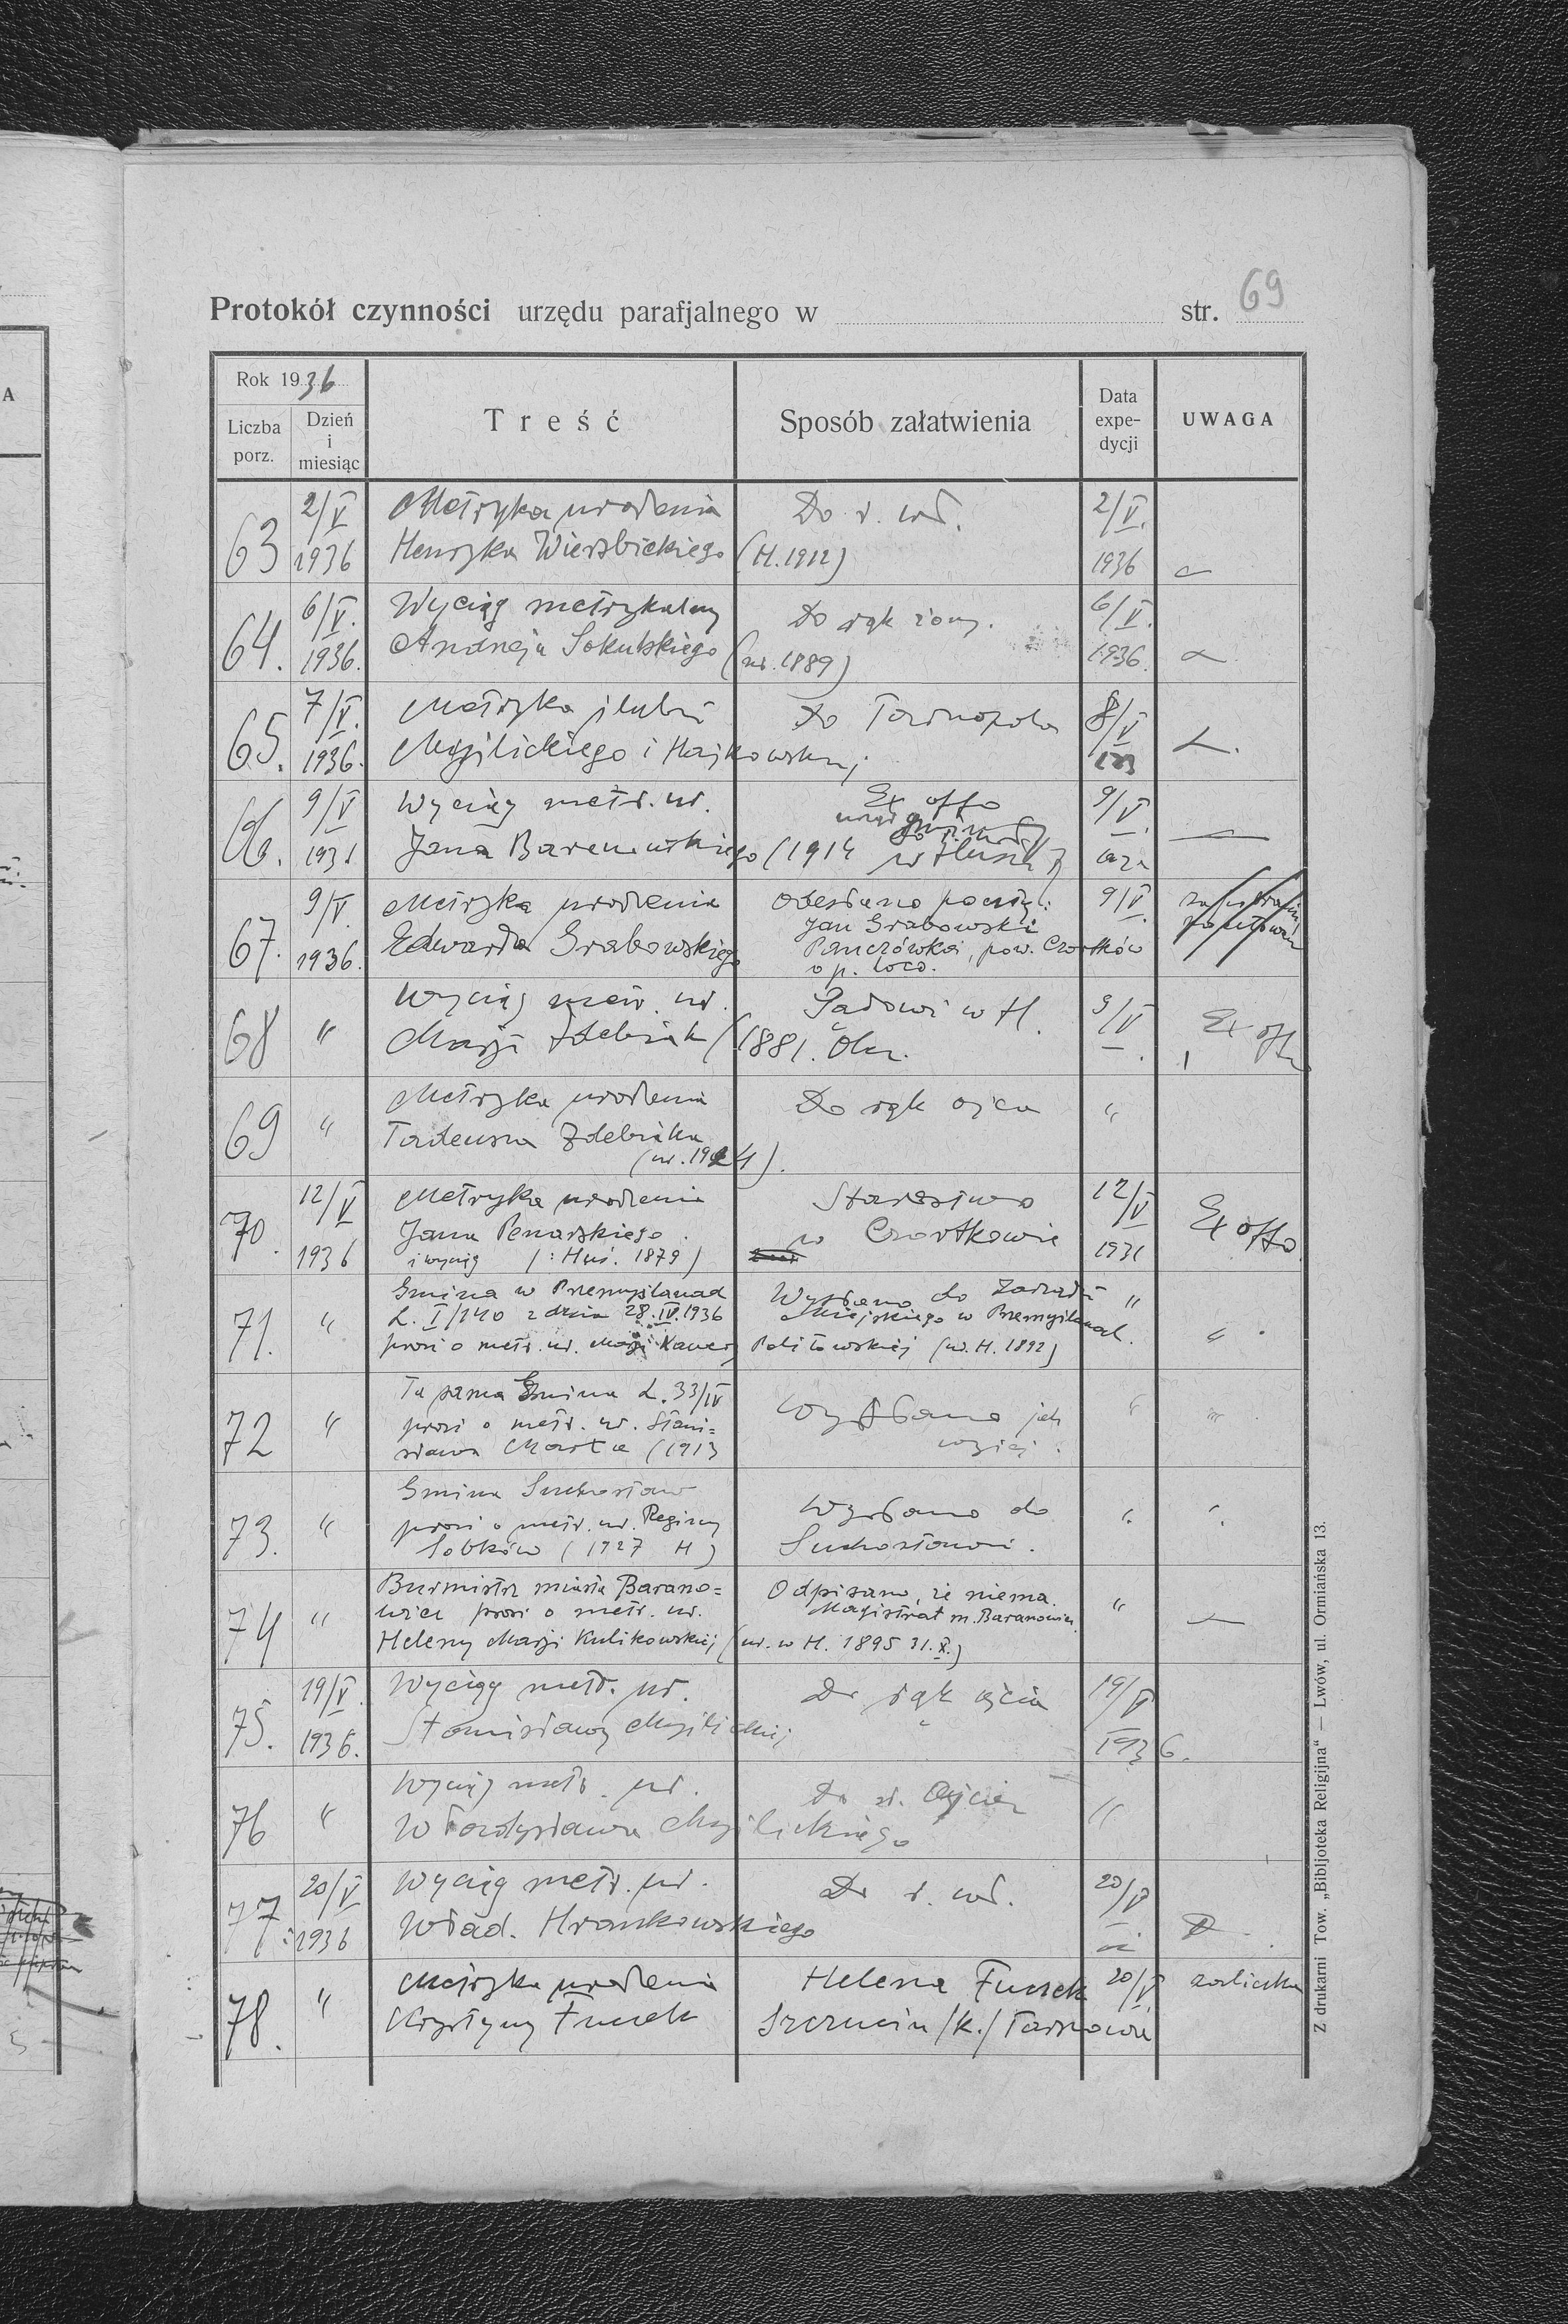 Protokół czynności urzędu parafjalnego w str. 69
Rok 1936
Liczba porz.
Dzień i miesiąc
Treść
Sposób załatwienia
Data expe-dycji
UWAGA
63 2/V 1936
Metryka urodzenia
Henryka Wierzbickiego (H. 1912)
Do r. wł.
2/V. 1936
64. 6/V. 1936.
Wyciąg metrykalny
Andrzeja Sokulskiego (ur. 1889)
Do rąk żony.
6/V. 1936.
65. 7/V. 1936.
Metryka ślubu
Myślickiego i Hajkowskiej
Do Tarnopola
8/V
66. 9/V
Wyciąg metr. ur.
Jana (1914
Ex offo
9/V.
67. 9/V. 1936.
Metryka urodzenia
Edwarda Grabowskiego
Odesłano pocztą:
Jan Grabowski
pow. Czortków
o p. loco.
9/V.
68 "
Wyciąg metr. ur.
Marji Zdebiak (1881.
Sądowi w H.
9/V
Ex offo
69 "
Metryka urodzenia
Tadeusza Zdebiaka
Do rąk ojca
"
70. 12/V 1936
Metryka urodzenia
Jana Penarskiego.
i wyciąg (: Huś. 1879)
Starostwo
w Czortkowie
12/V
Ex offo
71. "
Gmina w Przemyślanach
L. I/140 z dnia 28.IV.1936
prosi o metr. ur. Marji
Politowskiej (ur. H. 1892)
Wysłano do Zarządu
Miejskiego w Przemyślanach.
"
"
72 "
Ta sama Gmina L. 33/IV
prosi o metr. ur. Stani=
sława (1913
Wysłano jak
wyżej.
"
"
73. "
Gmina Suchostaw
prosi o metr. ur. Reginy
Sobków (1927 H)
Wysłano do
"
"
74 "
Burmistrz miasta Barano=
wicz prosi o metr. ur.
Heleny Marji Kulikowskiej (ur. w H. 1895 31.X.)
Odpisano, że niema.
Magistrat m. Baranowicz.
"
75. 19/V. 1936.
Wyciąg metr. ur.
Stanisławy Myślickiej
Do rąk ojca
19/V 1936.
76 "
Wyciąg metr. ur.
Myślickiego
Do r. Ojcier
"
77. 20/V 1936
Wyciąg metr. ur.
Wład. Hrankowskiego
Do r. wł.
20/V
78. "
Metryka urodzenia
Krystyny Fucek
Helena Fucek
Szczucin /k./ Tarnowa
20/V.
zaliczka
Z drukarni Tow. „Bibljoteka Religijna" — Lwów, ul. Ormiańska 13.